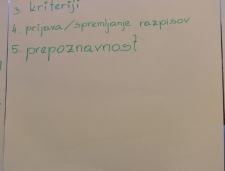 3. kriteriji
4. prijava/spremljanje razpisov
5. prepoznavnost